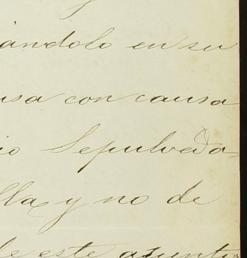 ándolo en su
usa con causa
io Sepulveda
lla y no de
de este asunto